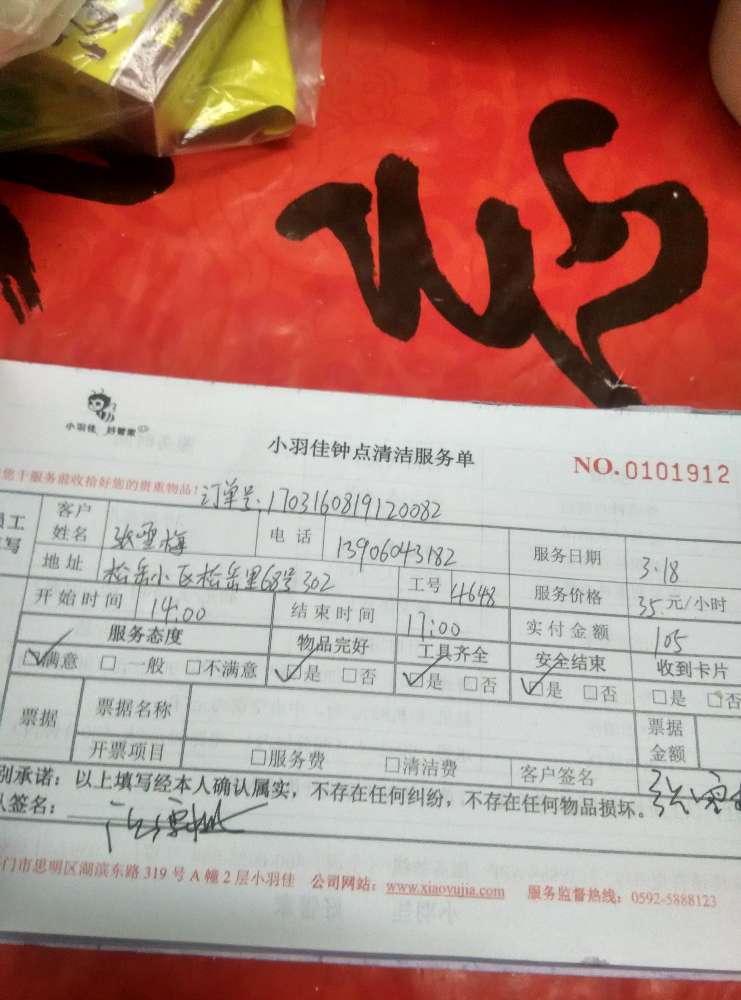 小羽佳 好管家
小羽佳钟点清洁服务单
NO.0101912
您于服务前收拾好您的贵重物品！订单号:1703160819120082
员工
客户姓名 张雪梅 电话 13906043182 服务日期 3.18
地址 松岳小区松岳里68号302 工号 4648 服务价格 35元/小时
开始时间 14:00 结束时间 17:00 实付金额 105
服务态度 物品完好 工具齐全 安全结束 收到卡片
☑满意 □一般 □不满意 ☑是 □否 ☑是 □否 ☑是 □否 □是 □否
票据 票据名称 票据金额
开票项目 □服务费 □清洁费 客户签名
别承诺：以上填写经本人确认属实，不存在任何纠纷，不存在任何物品损坏。
人签名：
门市思明区湖滨东路 319 号 A 幢 2 层小羽佳 公司网站：www.xiaoyujia.com 服务监督热线：0592-5888123